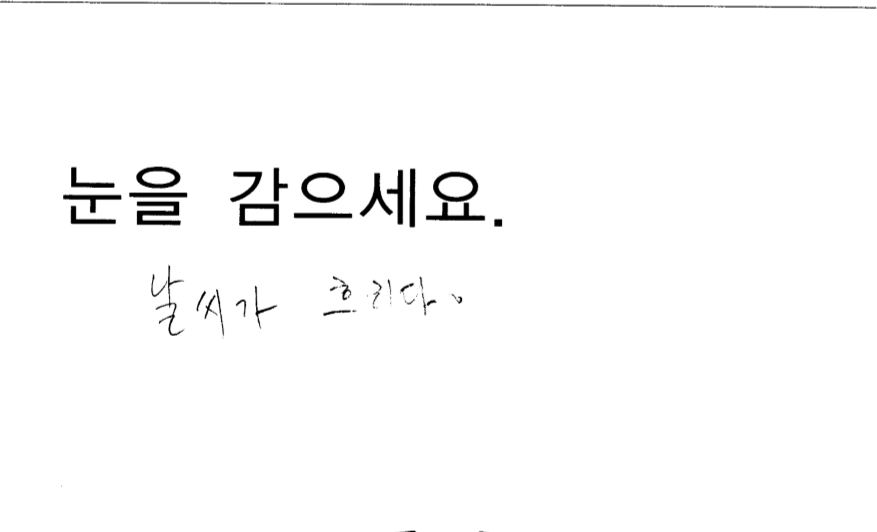 눈을 감으세요.
날씨가 흐리다.